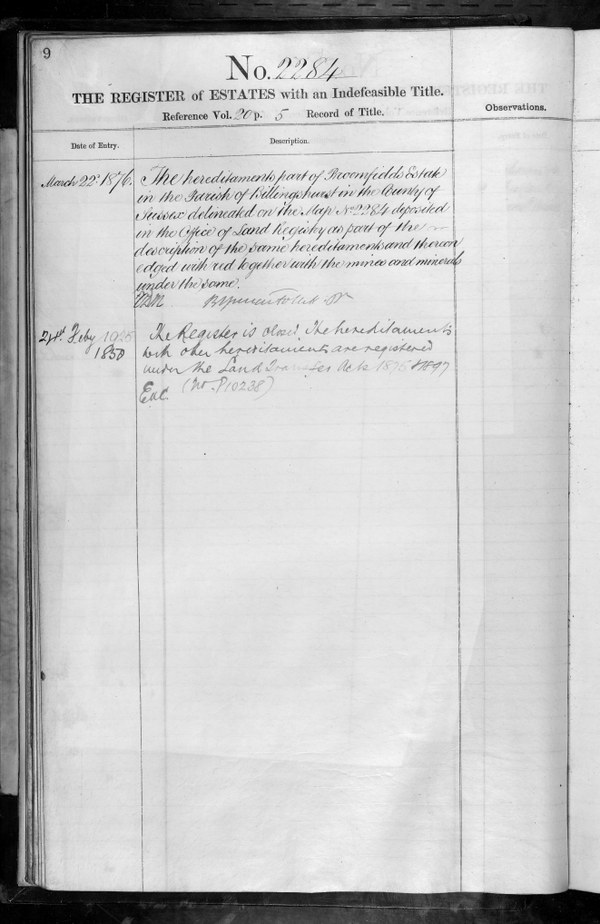 9
No. 2284
THE REGISTER of ESTATES with an Indefeasible Title.
Reference Vol. 20 p. 5 Record of Title.
Observations.
Date of Entry.
Description.
March 22d 1876.
The hereditaments part of Broomfields Estate
in the Parish of Billingshurst in the County of
Sussex delineated on the Map No 2284 deposited
in the Office of Land Registry as part of the
description of the same hereditaments and thereon
edged with red together with the mines and minerals
under the same.
Feby
The Register is closed. The hereditaments
with other hereditaments are registered
under the Land Transfer Acts 1875 & 1897
(No. P10238)